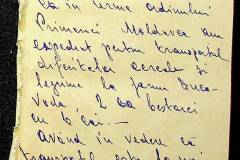 că în urma ordinului
Primăriei Moldova am
expediat pentru transportul
diferitelor cereale și
legume la farma
Vodă 2
cu 6 cai.—
având în vedere că
transportul este